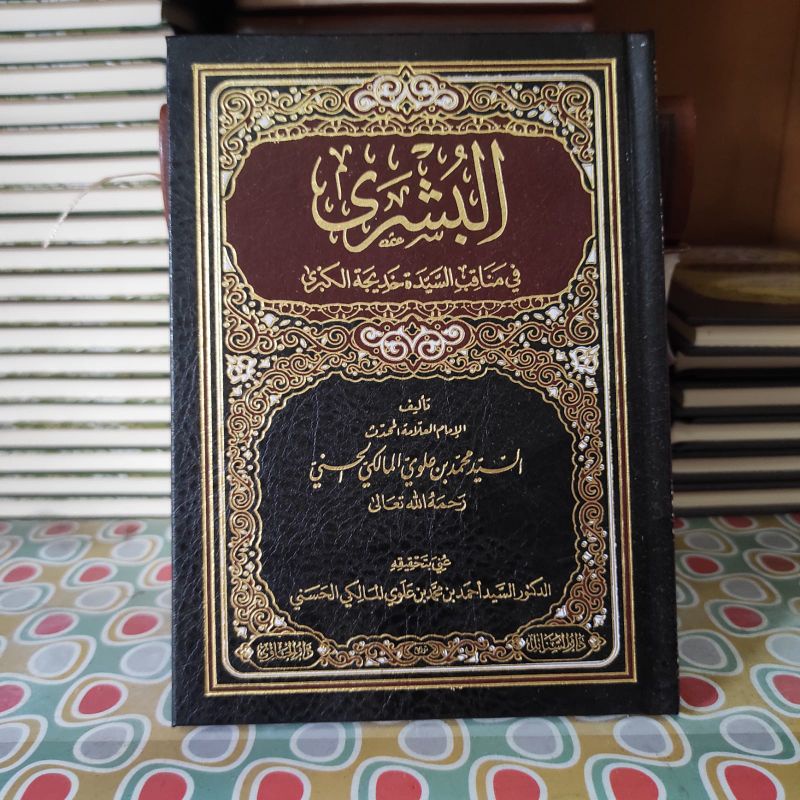 البُشْرَى
في مناقب السَّيِّدة خديجة الكبرى
تأليف
الإمام العلامة المحدث
السَّيِّد محمَّد بن علوي المالكي الحسني
رحمه الله تعالى
عُني بتحقيقه
الدكتور السَّيد أحمد بن محمَّد بن علوي المالكي الحَسَني